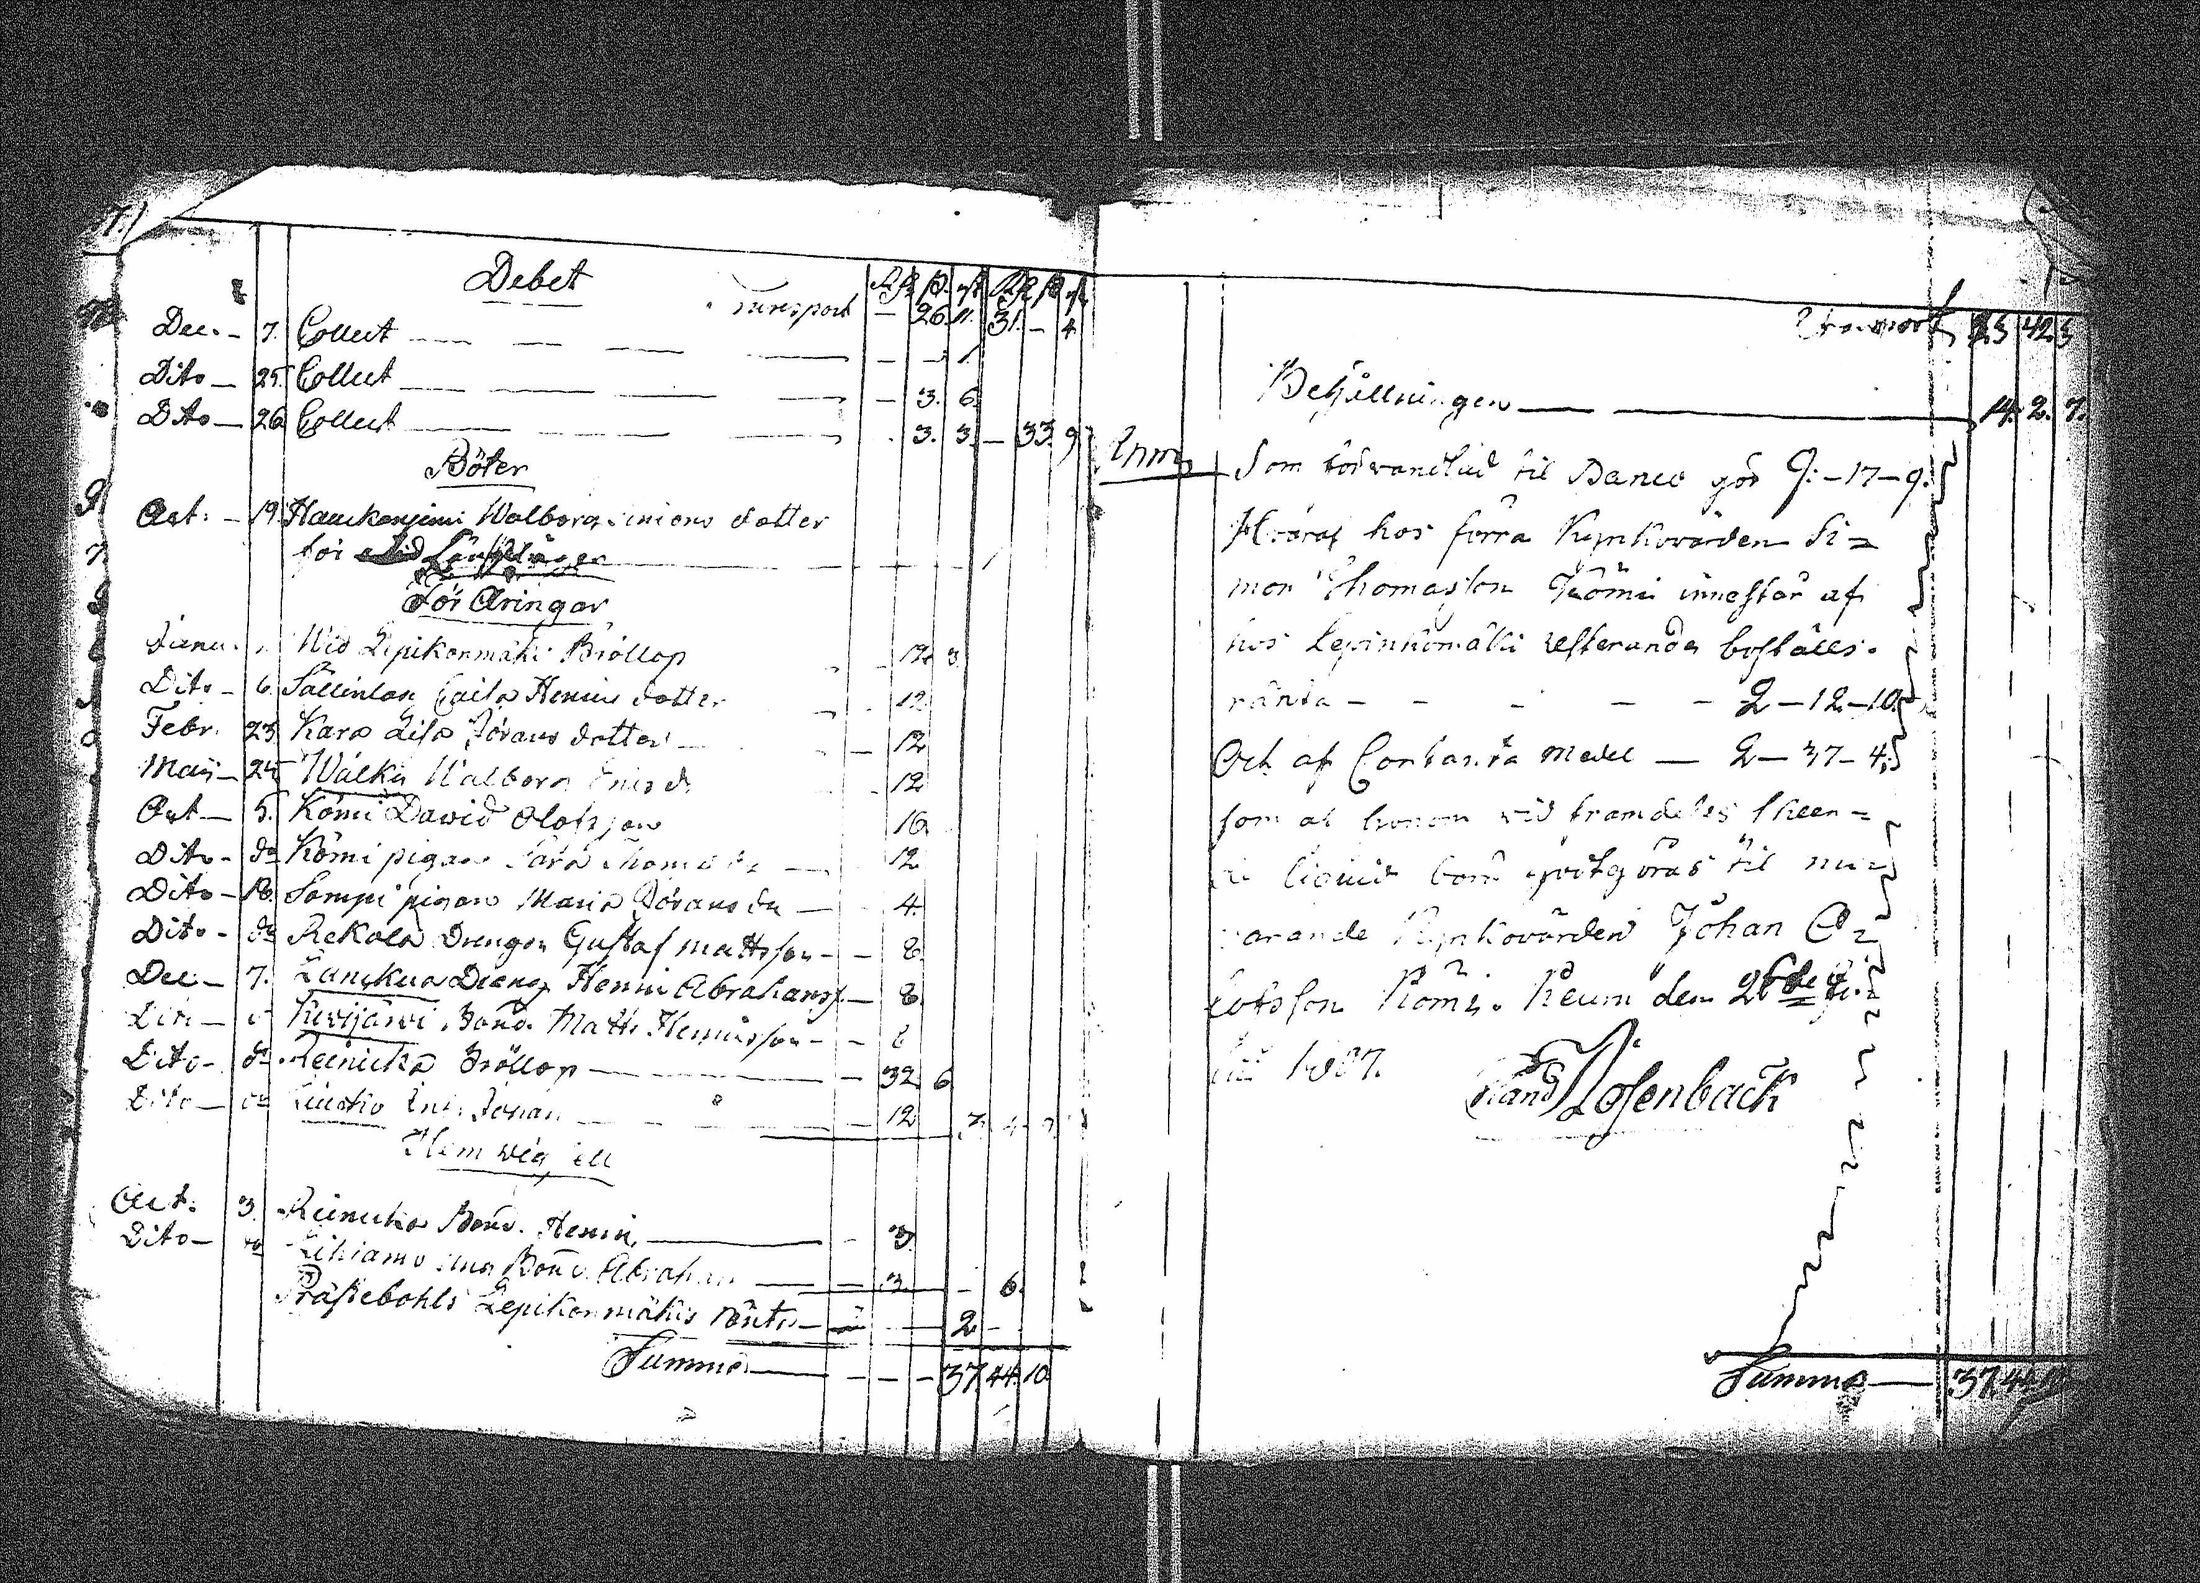 Debet
Transport — 26. 11. 31. — 4.
Dec. — 7. Collect — — 1.
Dito — 25. Collect — 3. 6.
Dito — 26. Collect 3. 3. — 33. 9
Böter
Oct: — 19. Walborg Simons dotter
för
För Äringar
Wid Lepikonmäki Bröllop 12. 3
Dito — 6. Caisa Henrics dotter 12
Febr. 23. Kara Lisa Jörans dotter — 12
Maij — 24 Walborg 12
Oct — 5. Kömi David Olofsson 16
Dito — do Kömi pigan 12
Dito — 18. Sompi pigan Maria Jörans dr — 4.
Dito — do Rekola Drengen Gustaf Mattsson — 8
Dec — 7. Dreng Henric Abrahamss. — 8
Kivijärvi Bond. Matts Henricsson — 8
Dito — do Reinicka Bröllop — 32 6
Dito — do Johan 12
Oct. 3. Reinicka Bond. Henric — 3.
Dito — do Bond. Abraham — 3. — 6.
Präстebohls Lepikonmäkis ränta — 2 —
Summa — — — 37. 44. 10
Transport 23 42. 3
Behållningen — 14. 2. 7.
Anm. Som förvandlad til Banco gör 9. — 17 — 9.
Hvaraf hos förra Kyrkovärden Si=
mon Thomasson Kömi innestår af
hos Lepinkomäki resterande boställs-
ränta — — — — 2 — 12 — 10.
Och af Contanta Medel — 2 — 37 — 4.
som af honom vid framdeles skeen=
de liquid bör godtgöras til nu=
varande Kyrkovärden Johan O=
lofsson Kömi. Keuru den 26de
1807.
Rosenback
Summa — 37. 44. 10